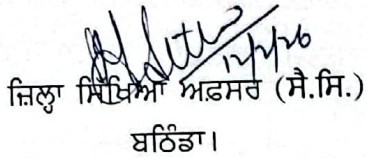 ਜ਼ਿਲ੍ਹਾ ਸਿੱਖਿਆ ਅਫ਼ਸਰ (ਸੈ.ਸਿ.)
ਬਠਿੰਡਾ।